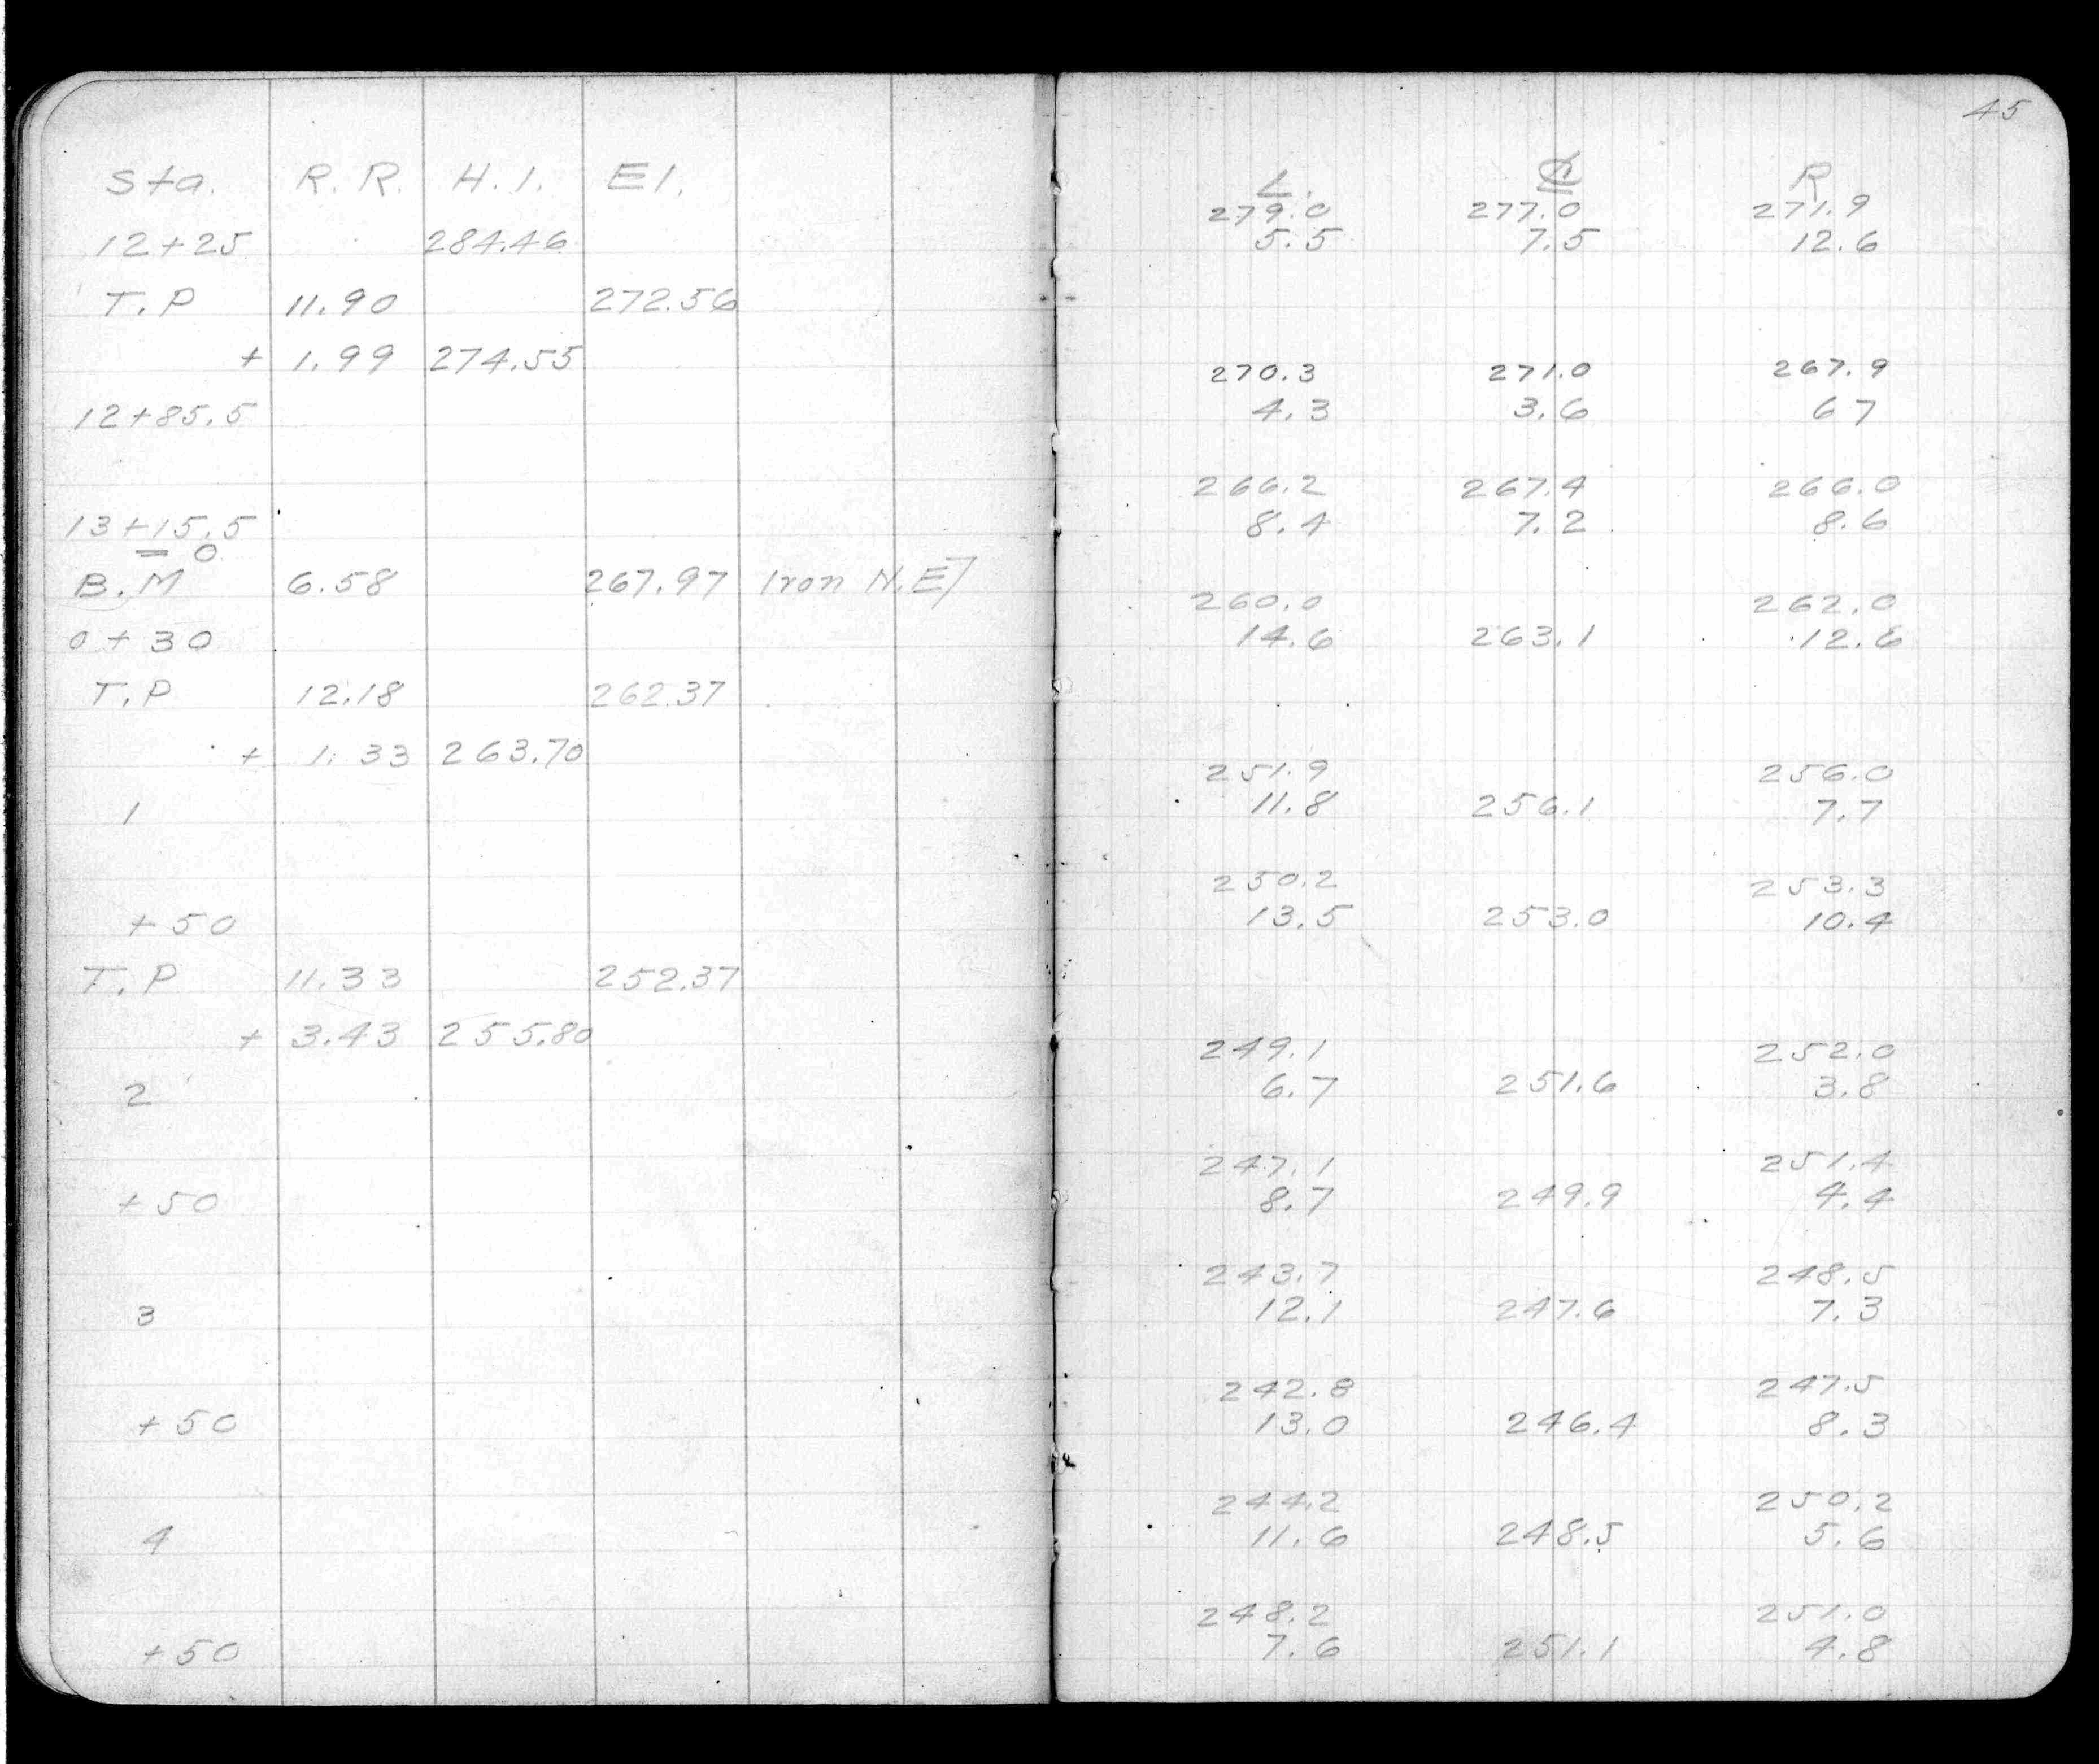 45
Sta. R.R. H.I. El.
12+25 284.46
T.P 11.90 272.56
+ 1.99 274.55
12+85.5
13+15.5
= 0
B.M 6.58 267.97 Iron N.E
0+30
T.P 12.18 262.37
+ 1.33 263.70
1
+50
T.P 11.33 252.37
+ 3.43 255.80
2
+50
3
+50
4
+50
L. ℄ R
279.0 277.0 271.9
5.5 7.5 12.6
270.3 271.0 267.9
4.3 3.6 67
266.2 267.4 266.0
8.4 7.2 8.6
260.0 262.0
14.6 263.1 12.6
251.9 256.0
11.8 256.1 7.7
250.2 253.3
13.5 253.0 10.4
249.1 252.0
6.7 251.6 3.8
247.1 251.4
8.7 249.9 4.4
243.7 248.5
12.1 247.6 7.3
242.8 247.5
13.0 246.4 8.3
244.2 250.2
11.6 248.5 5.6
248.2 251.0
7.6 251.1 4.8